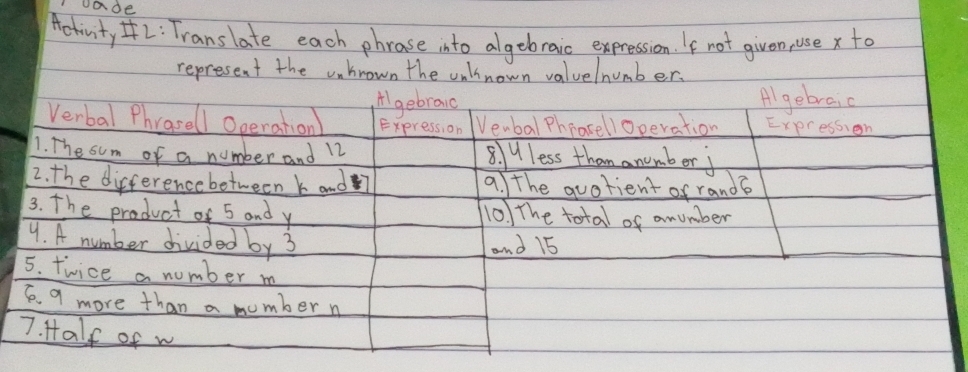 Activity #2: Translate each phrase into algebraic expression. If not given, use x to
represent the unknown the unknown value/number.
Verbal Phrase (1 Operation)
Algebraic
Expression
Verbal Phrase (1 Operation
Algebraic
Expression
1. The sum of a number and 12
2. the difference between k and 7
3. the product of 5 and y
4. A number divided by 3
5. twice a number m
6. 9 more than a number n
7. Half of w
8.) 4 less than a number j
9.) The quotient of r and 6
10.) The total of a number
and 15